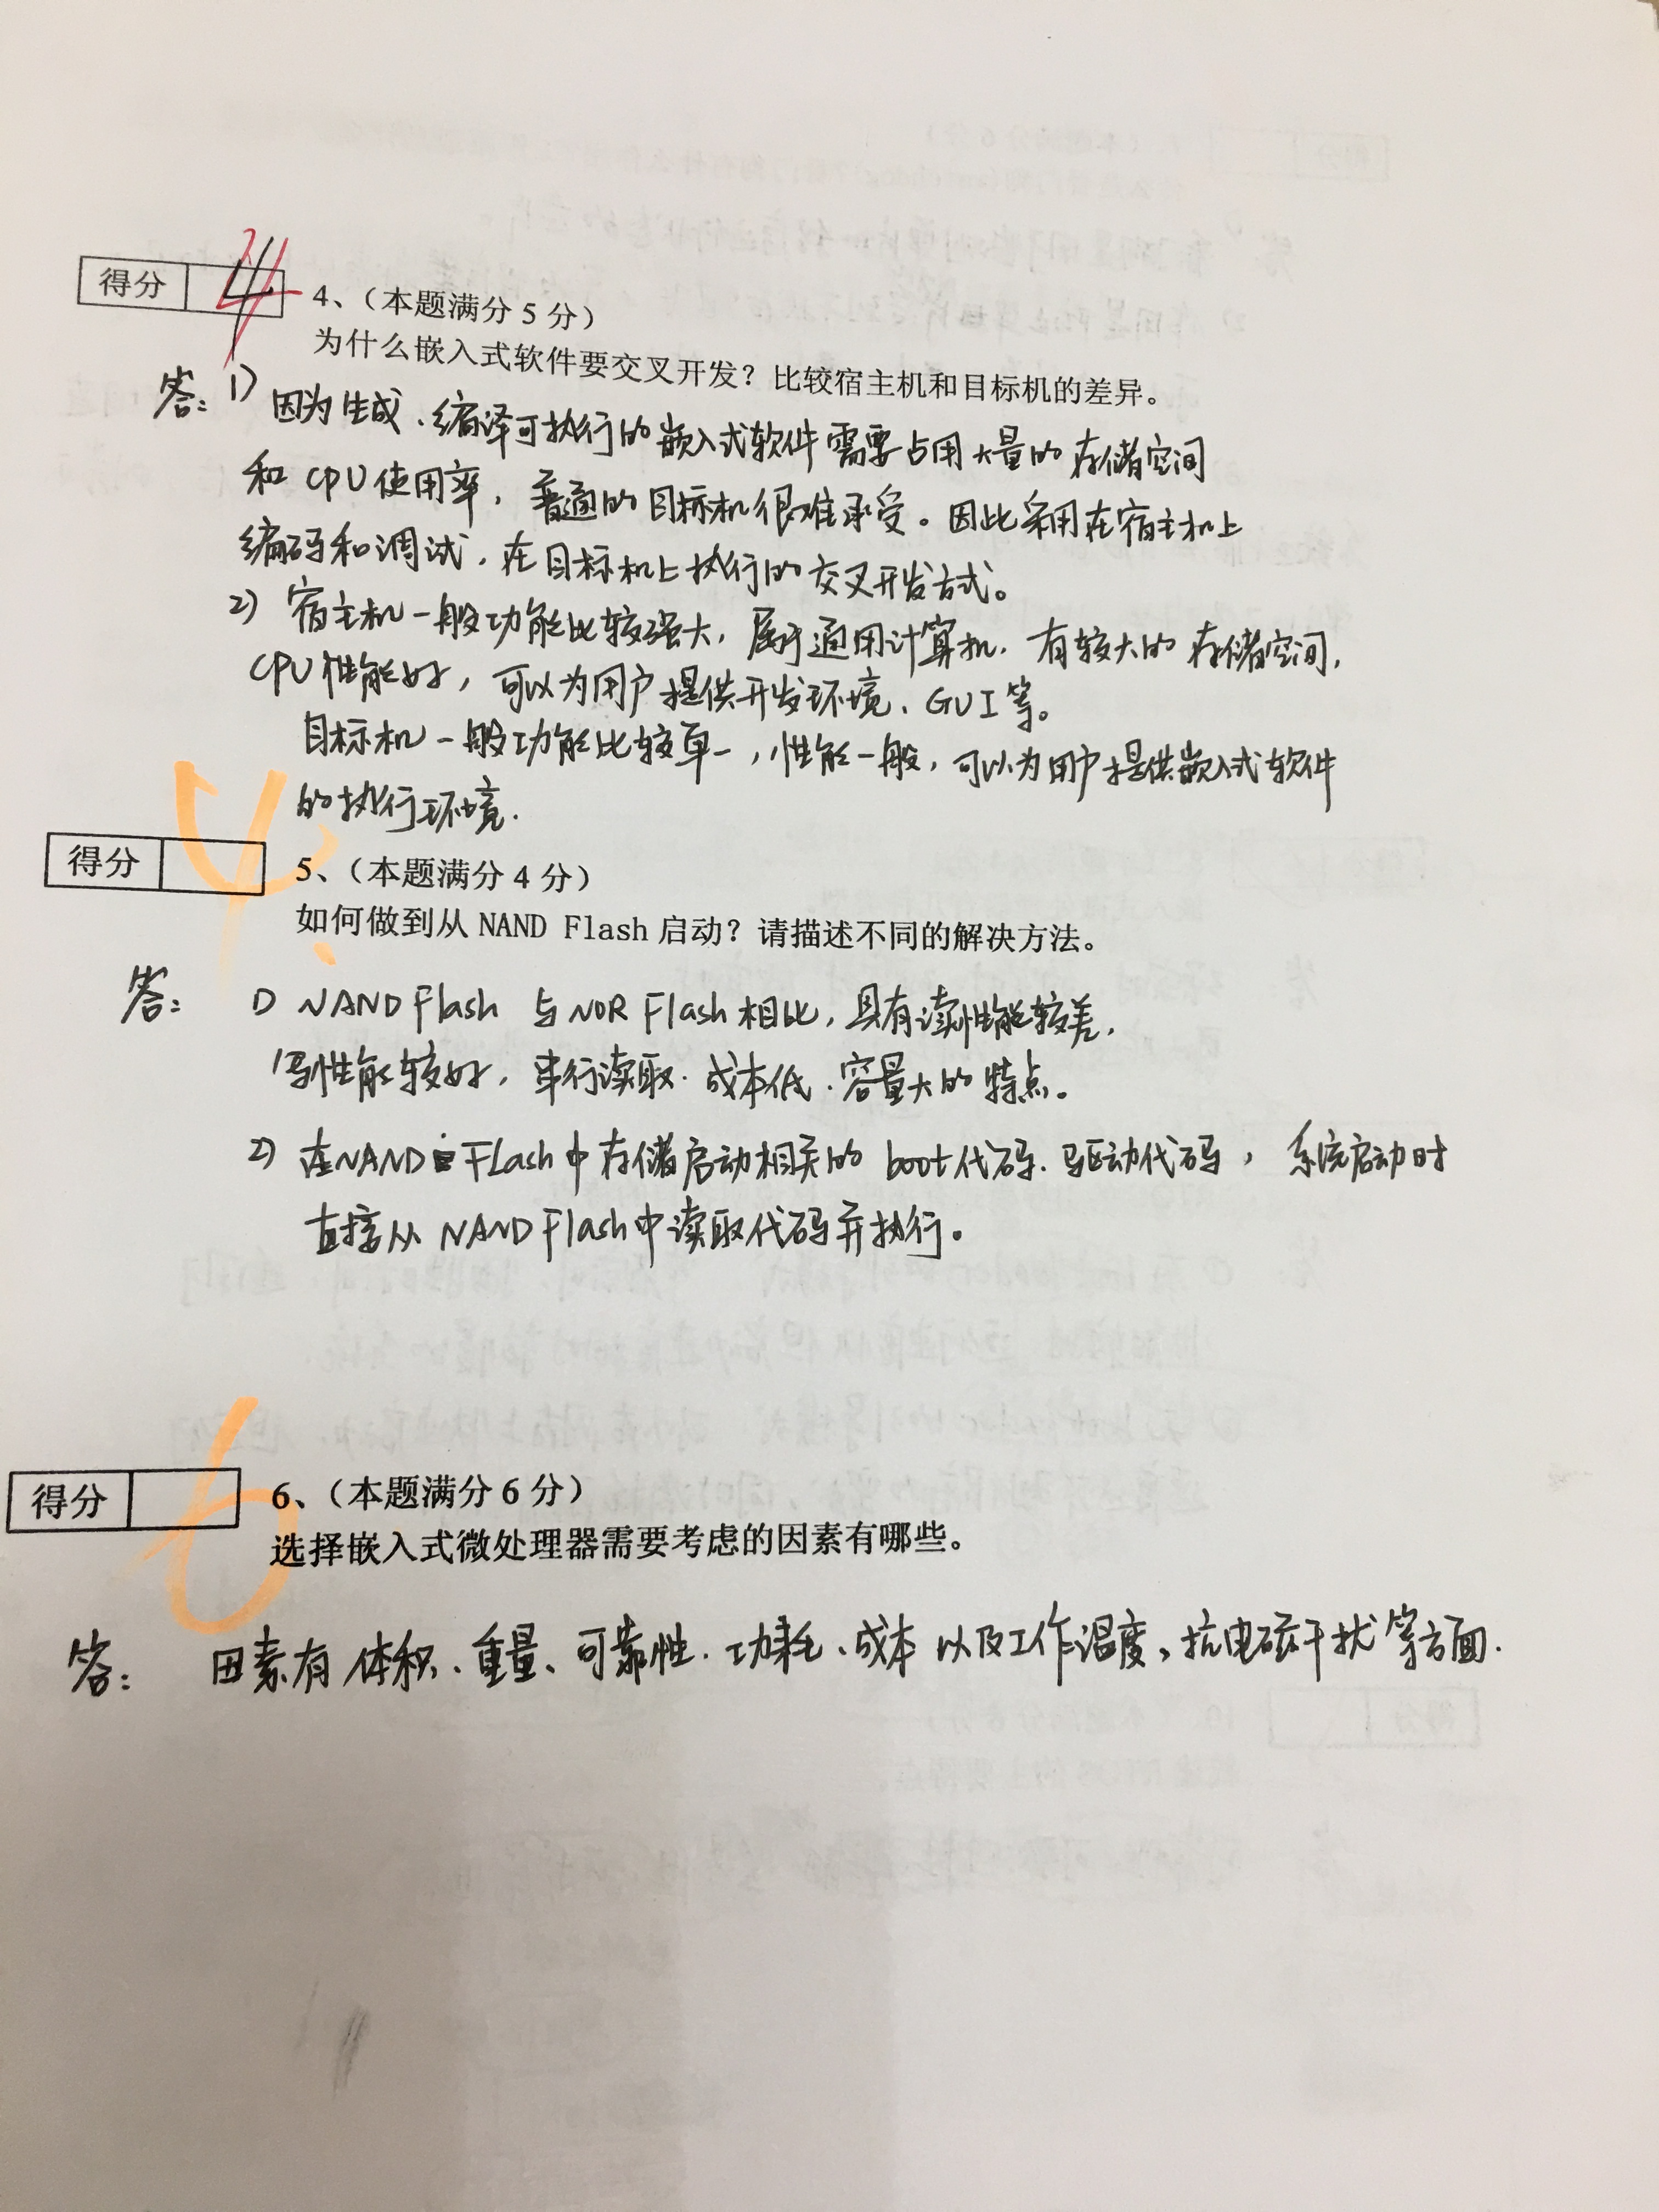 得分 4 4、（本题满分 5 分）
为什么嵌入式软件要交叉开发？比较宿主机和目标机的差异。
答：1) 因为生成、编译可执行的嵌入式软件需要占用大量的存储空间
和 CPU 使用率，普通的目标机很难承受。因此采用在宿主机上
编码和调试，在目标机上执行的交叉开发方式。
2) 宿主机一般功能比较强大，属于通用计算机，有较大的存储空间，
CPU性能好，可以为用户提供开发环境、GUI等。
目标机一般功能比较单一，性能一般，可以为用户提供嵌入式软件
的执行环境.
得分 4 5、（本题满分 4 分）
如何做到从 NAND Flash 启动？请描述不同的解决方法。
答： 1) NAND Flash 与 NOR Flash 相比，具有读性能较差，
写性能较好，串行读取、成本低、容量大的特点。
2) 在NAND Flash中存储启动相关的 boot代码、驱动代码，系统启动时
直接从 NAND Flash中读取代码并执行。
得分 6 6、（本题满分 6 分）
选择嵌入式微处理器需要考虑的因素有哪些。
答： 因素有体积、重量、可靠性、功耗、成本以及工作温度、抗电磁干扰等方面.